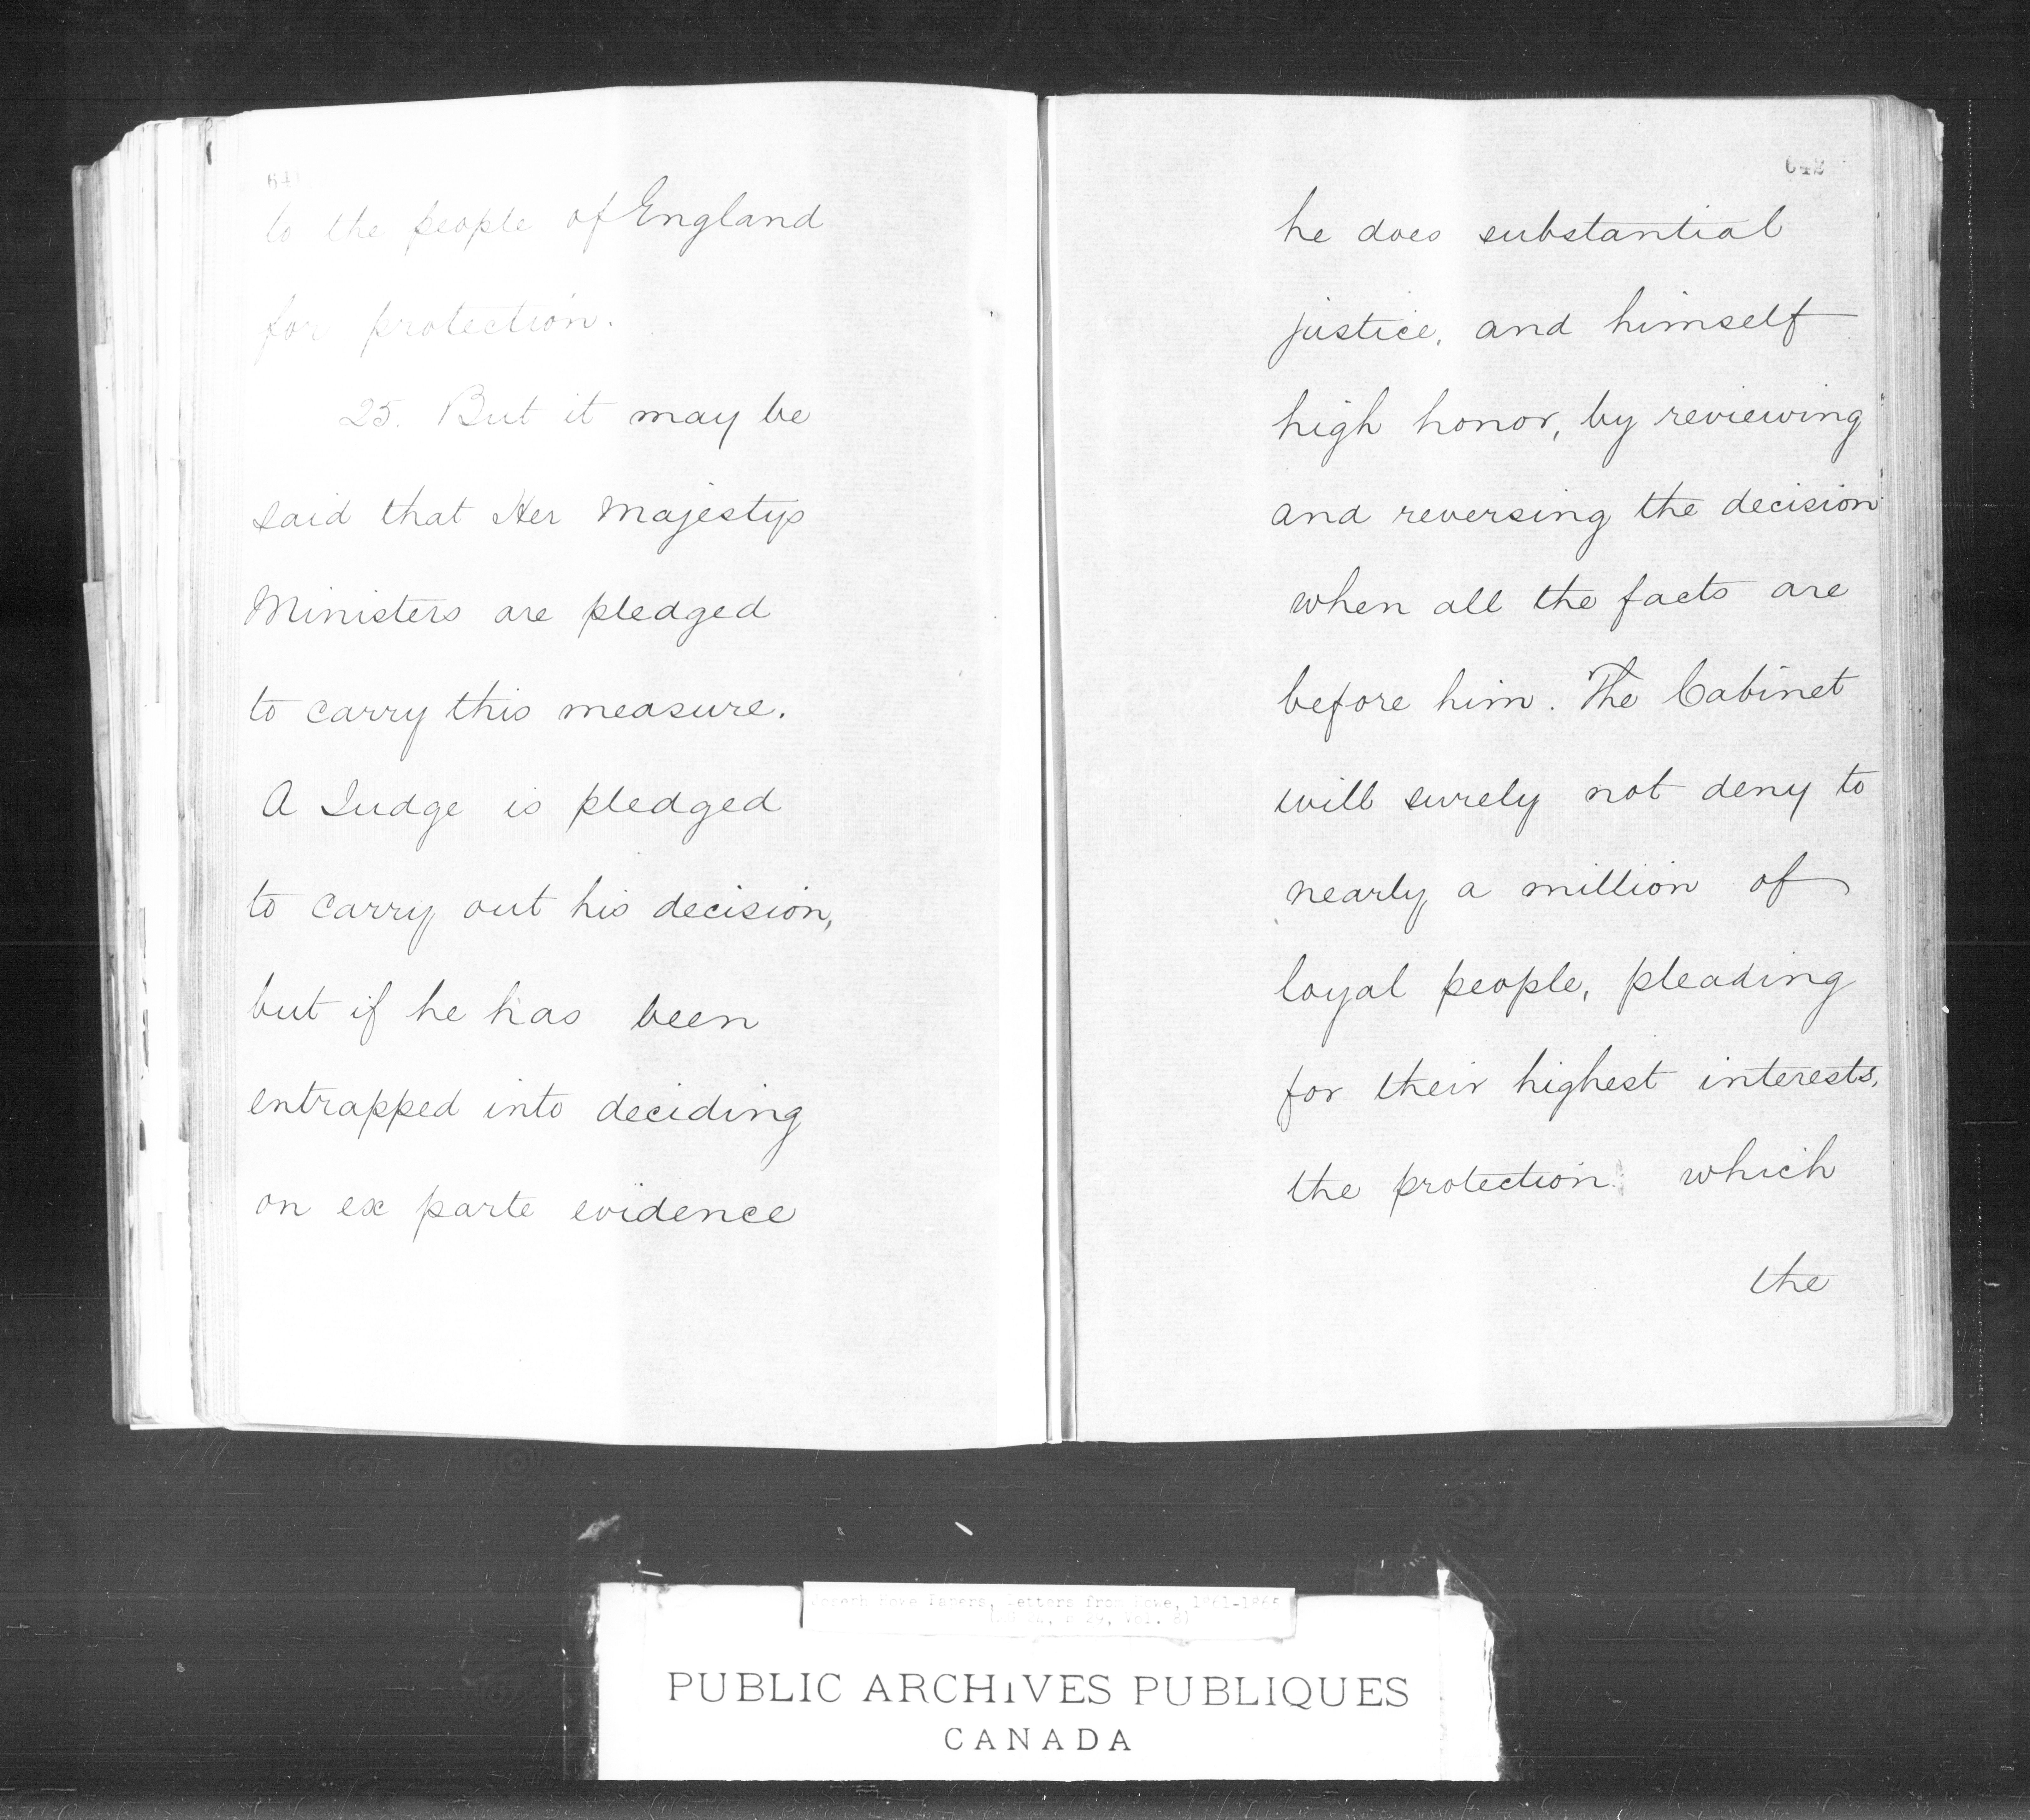 641
to the people of England
for protection.
25. But it may be
said that Her Majestys
Ministers are pledged
to carry this measure.
A Judge is pledged
to carry out his decision,
but if he has been
entrapped into deciding
on ex parte evidence
642
he does substantial
justice, and himself
high honor, by reviewing
and reversing the decision
when all the facts are
before him. The Cabinet
will surely not deny to
nearly a million of
loyal people, pleading
for their highest interests,
the protection which
the
Joseph Howe Papers, Letters from Howe, 1861-1868
PUBLIC ARCHIVES PUBLIQUES
CANADA